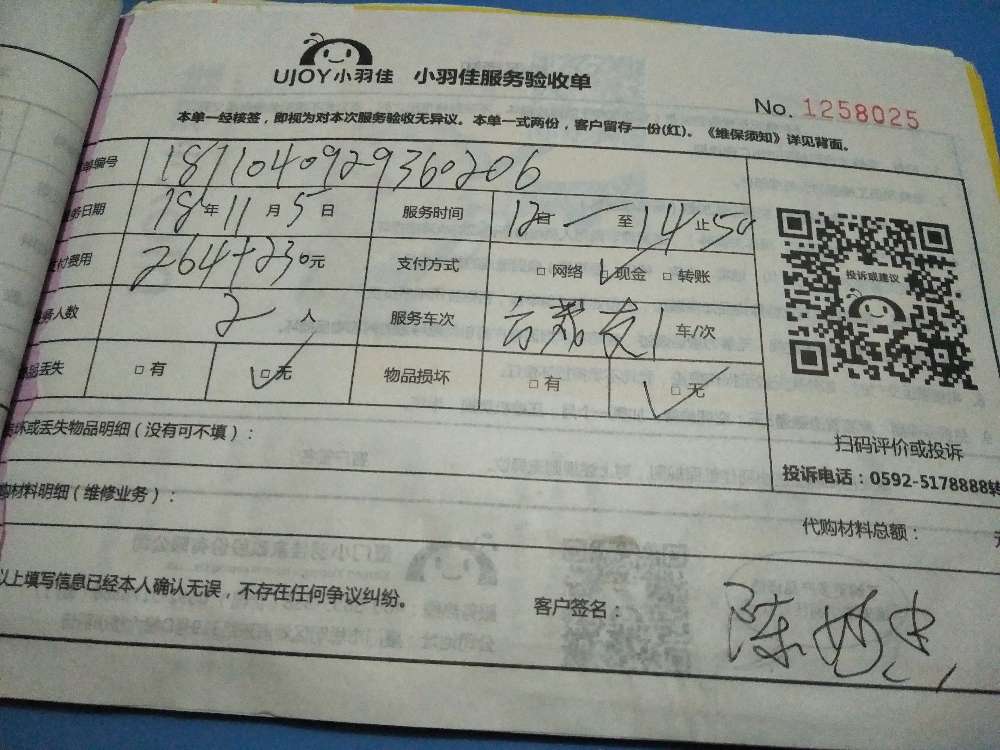 UJOY小羽佳 小羽佳服务验收单
No. 1258025
本单一经核签，即视为对本次服务验收无异议。本单一式两份，客户留存一份(红)。《维保须知》详见背面。
单编号 1811040929360206
务日期 18年11月5日 服务时间 12自 至14止50
支付费用 264+230元 支付方式 □网络 □现金 □转账
务人数 2人 服务车次 1车/次
品丢失 □有 □无 物品损坏 □有 □无
投诉或建议
扫码评价或投诉
投诉电话：0592-5178888转
损坏或丢失物品明细（没有可不填）：
购材料明细（维修业务）：
代购材料总额：
以上填写信息已经本人确认无误，不存在任何争议纠纷。
客户签名：陈